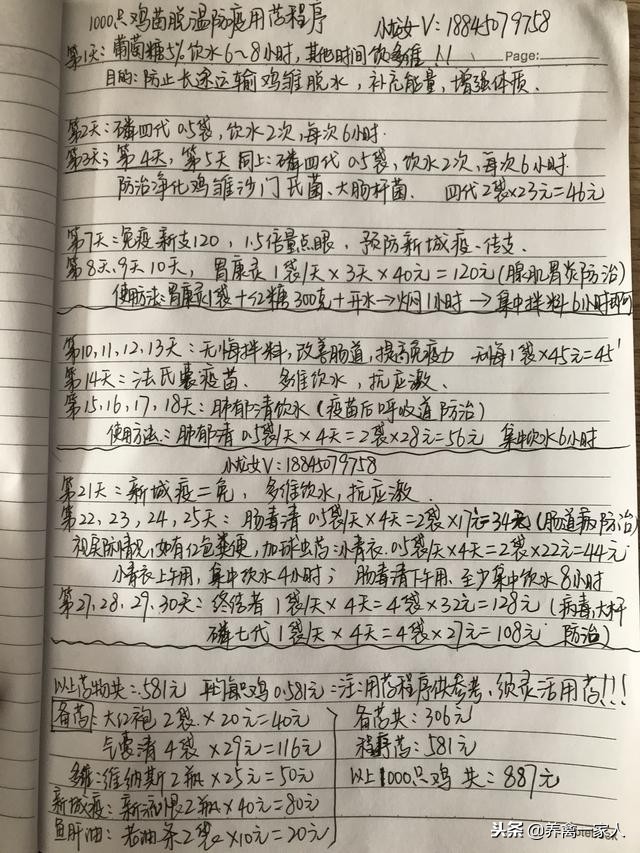 1000只鸡苗脱温防疫用药程序 小龙女V：18845079758
第1天：葡萄糖5%饮水6~8小时，其他时间饮多维！！ Page:
目的：防止长途运输鸡雏脱水，补充能量，增强体质．
第2天：磷四代 0.5袋，饮水2次，每次6小时．
第3天；第4天，第5天同上：磷四代 0.5袋，饮水2次，每次6小时．
防治净化鸡雏沙门氏菌、大肠杆菌． 四代2袋×23元=46元
第7天：免疫新支120，1.5倍量点眼，预防新城疫、传支．
第8天、9天10天，胃康灵1袋/天×3天×40元=120元（腺肌胃炎防治）
使用方法：胃康灵1袋+红糖300克+开水→焖1小时→集中拌料6小时即可
第10,11,12,13天：无悔拌料，改善肠道，提高免疫力 无悔1袋×45元=45
第14天：法氏囊疫苗． 多维饮水，抗应激．
第15,16,17,18天：肺郁清饮水（疫苗后呼吸道防治）
使用方法：肺郁清 0.5袋/天×4天=2袋×28元=56元 集中饮水6小时
小龙女V：18845079758
第21天：新城疫二免，多维饮水，抗应激．
第22，23，24，25天：肠毒清 0.5袋/天×4天=2袋×17元=34元（肠道病防治）
视实际情况，如有红色粪便，加球虫药：小青衣．0.5袋/天×4天=2袋×22元=44元
小青衣上午用，集中饮水4小时；肠毒清下午用、至少集中饮水8小时
第27,28、29、30天：终结者 1袋/天×4天=4袋×32元=128元（病毒大杆
磷七代 1袋/天×4天=4袋×27元=108元 防治）
以上药物共：581元 平均每只鸡0.581元 注：用药程序供参考，须灵活用药！！！
备药：大红袍 2袋×20元=40元
气囊清 4袋×29元=116元
多维：维纳斯2瓶×25元=50元
新城疫：新流 2瓶×40元=80元
鱼肝油：2袋×10元=20元
备药共：306元
程序药：581元
以上1000只鸡 共：887元
头条 @养禽一家人